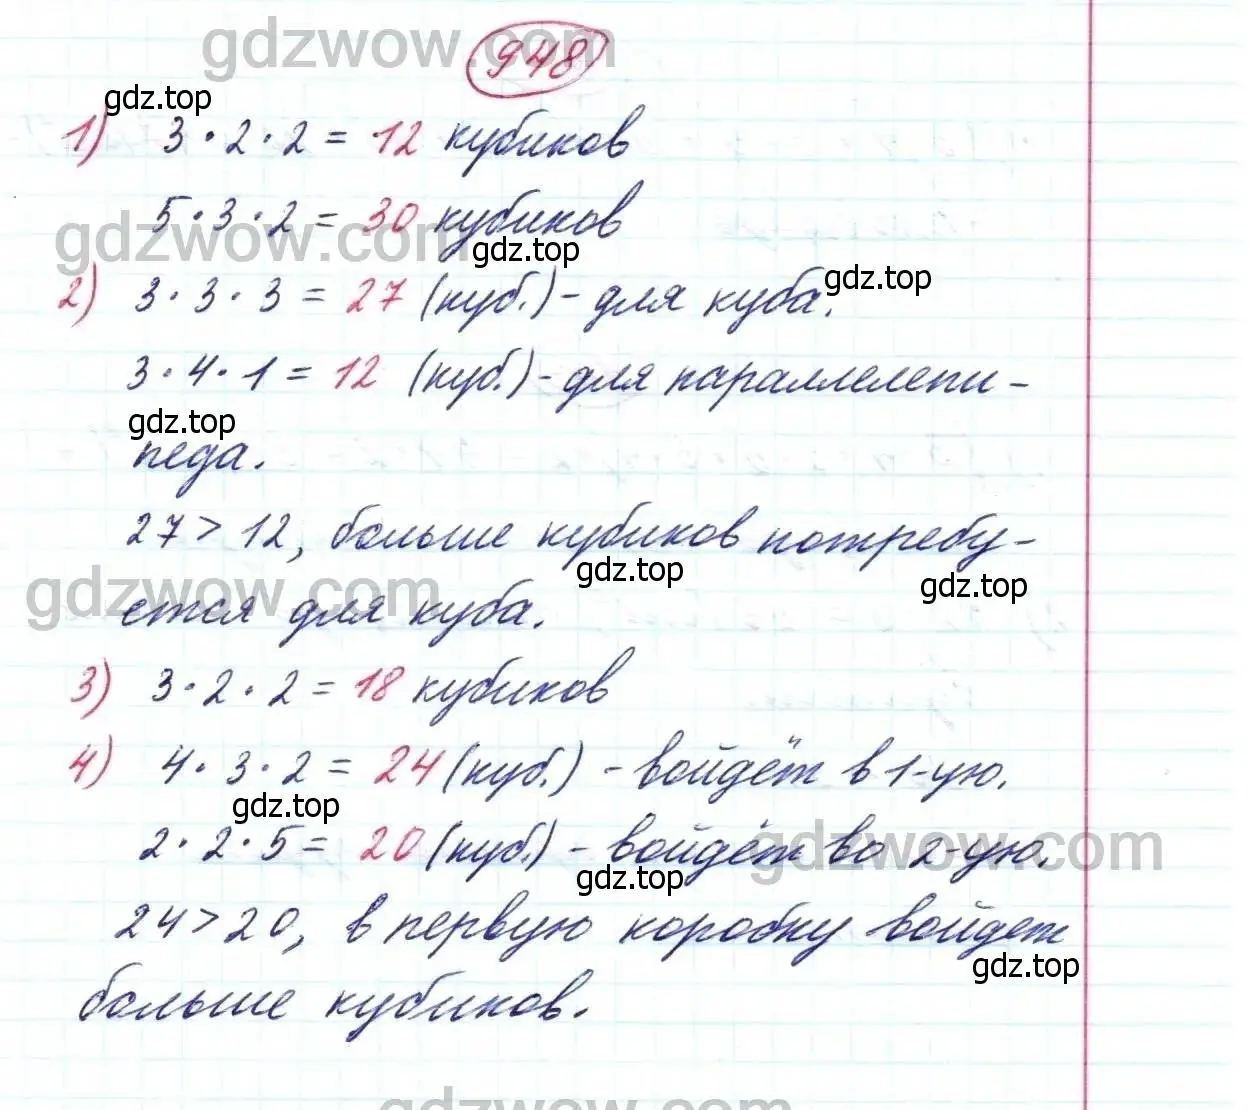 gdzwow.com
948
gdz.top
1) 3·2·2 = 12 кубиков
5·3·2 = 30 кубиков
gdzwow.com
gdz.top
gdz.top
2) 3·3·3 = 27 (куб.) - для куба.
3·4·1 = 12 (куб.) - для параллелепи-
gdz.top
педа.
27 > 12, больше кубиков потребу-
gdz.top
gdz.top
gdzwow.com
ется для куба.
3) 3·2·2 = 18 кубиков
4) 4·3·2 = 24 (куб.) - войдёт в 1-ую.
gdz.top
2·2·5 = 20 (куб.) - войдёт во 2-ую.
gdzwow.com
gdz.top
24 > 20, в первую коробку войдет
gdz.top
больше кубиков.
gdzwow.com